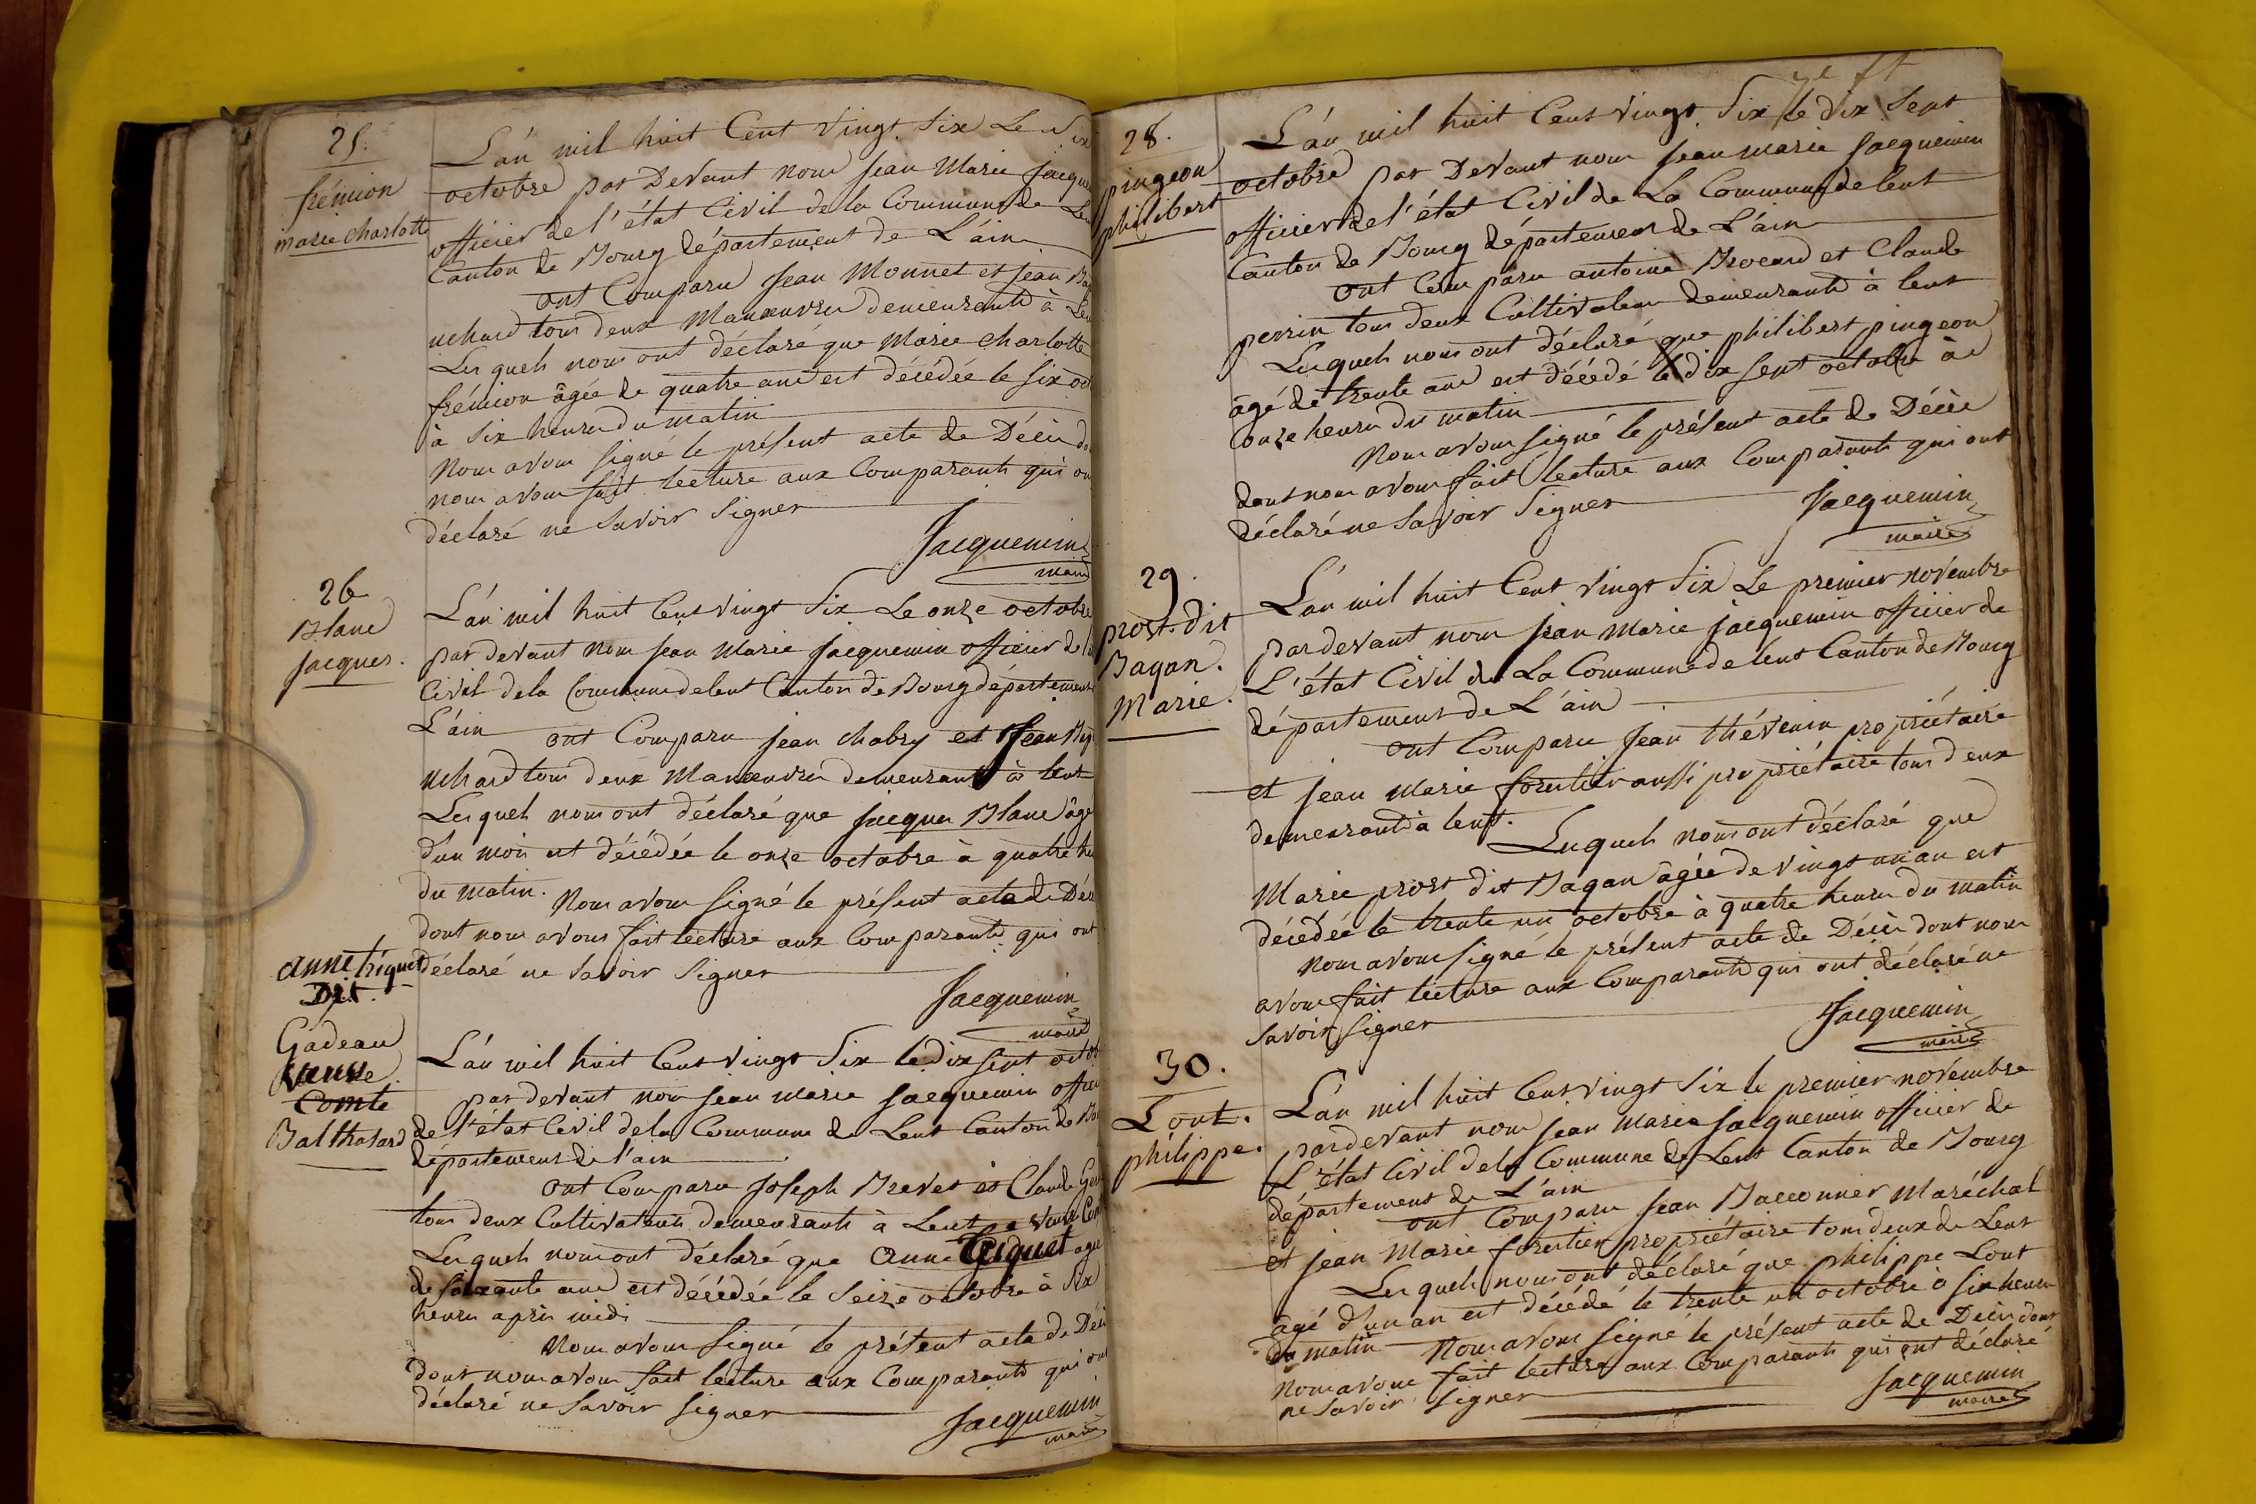 25.
frémion
marie charlotte
L'án mil huit Cent Vingt Six Le Six
octobre par Devant nous Jean Marie Jacque
officier de l'état Civil de la Commune de Le
Canton de Bourg département de L'ain
ont Comparu Jean Monnet et Jean
uchard tous deux Manœuvres demeurants à Len
Lesquels nous ont déclaré que Marie Charlotte
frémion âgée de quatre ans est décédée le six oct
à six heures du matin
Nous avons signé le présent acte de Décès do
nous avons fait lecture aux Comparants qui on
déclaré ne Savoir Signer
Jacquemin
maire
26
Blanc
Jacques.
L'án mil huit Cent vingt Six Le onze octobre
par devant nous Jean Marie Jacquemin officier de l'é
Civil de la Commune de lent Canton de Bourg département
L'ain ont Comparu Jean chabry et Jean
uchard tous deux Manœuvres demeurants à lent
Lesquels nous ont déclaré que Jacques Blanc âgé
d'un mois est décédée le onze octobre à quatre he
du matin. Nous avons signé le présent acte de Déc
dont nous avons fait lecture aux Comparants qui ont
déclaré ne Savoir Signer
Jacquemin
maire
anne triquet
Dit.
Gadeau
veuve
Comte
Balthasard
L'án mil huit Cent vingt Six le dix sept octo
par devant nous Jean Marie Jacquemin offici
de l'état Civil de la Commune de Lent Canton de Bo
département de l'ain
ont Comparu Joseph Brevet et Claude
tous deux Cultivateurs demeurants à Lent veuve Com
Lesquels nous ont déclaré que anne Triquet agée
de soixante ans est décédée le seize octobre à Six
heures après midi
Nous avons signé le présent acte de Déc
dont nous avons fait lecture aux Comparants qui ont
déclaré ne Savoir signer
Jacquemin
maire
28.
pingeon
philibert
L'án mil huit Cent vingt Six le dix Sept
octobre par Devant nous Jean marie Jacquemin
officier de l'état Civil de La Commune de lent
Canton de Bourg département de L'ain
ont Comparu antoine Brocard et Claude
perrin tous deux Cultivateurs demeurants à lent
Lesquels nous ont déclaré que philibert pingeon
âgé de trente ans est décédé le dix sept octobre à
onze heures du matin
Nous avons signé le présent acte de Décès
dont nous avons fait lecture aux Comparants qui ont
déclaré ne Savoir Signer
Jacquemin
maire
29.
prost. dit
Bagan.
Marie.
L'án mil huit Cent vingt Six Le premier novembre
par devant nous Jean Marie Jacquemin officier de
L'état Civil de La Commune de lent Canton de Bourg
département de L'ain
ont Comparu Jean thévenin propriétaire
et Jean Marie forestier aussi propriétaire tous deux
demeurants à lent.
Lesquels nous ont déclaré que
Marie prost dit Bagan âgée de vingt un an est
décédée le trente un octobre à quatre heures du matin
Nous avons signé le présent acte de Décès dont nous
avons fait lecture aux Comparants qui ont déclaré ne
Savoir Signer
Jacquemin
maire
30.
Lout.
philippe.
L'án mil huit Cent vingt Six le premier novembre
par devant nous Jean Marie Jacquemin officier de
L'état Civil de la Commune de Lent Canton de Bourg
département de L'ain
ont Comparu Jean Baconnier Maréchal
et Jean Marie forestier propriétaire tous deux de Lent
Lesquels nous ont déclaré que philippe Lout
âgé d'un an est décédé le trente un octobre à six heures
du matin Nous avons signé le présent acte de Décès dont
Nous avons fait lecture aux Comparants qui ont déclaré
ne Savoir signer
Jacquemin
maire